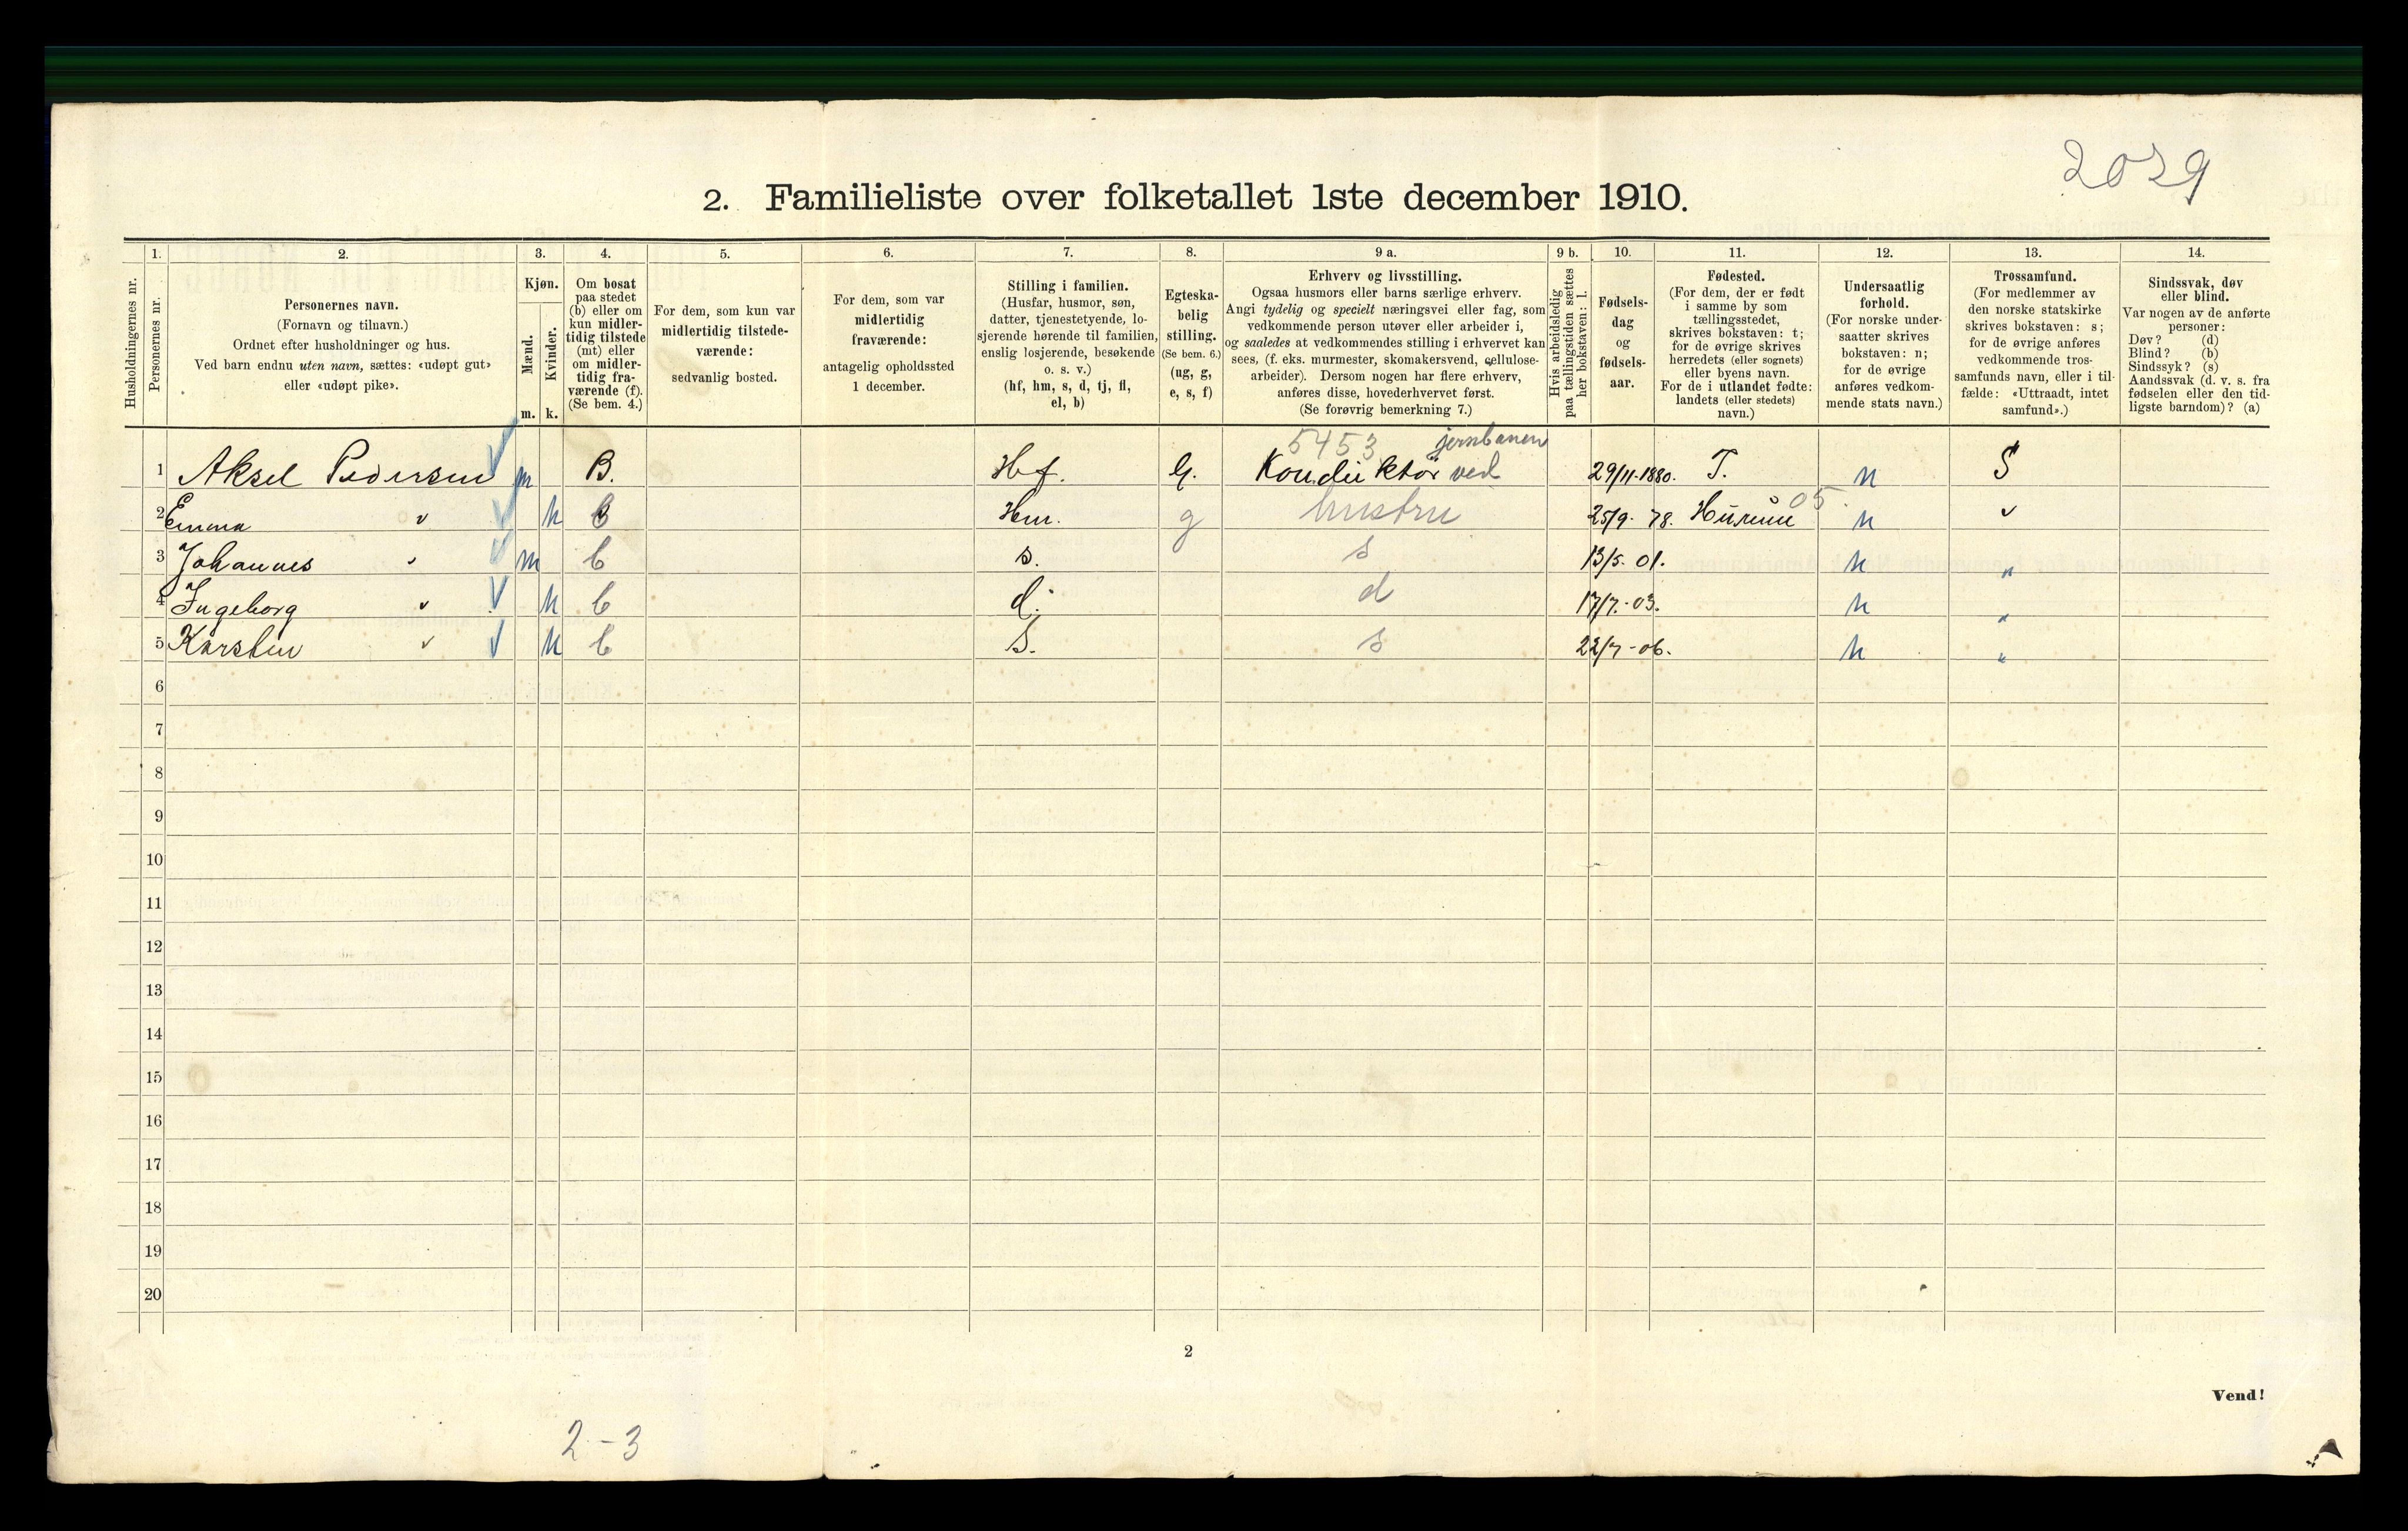 2029
2. Familieliste over folketallet 1ste december 1910.
Husholdningernes nr.
1.
Personernes nr.
2.
Personernes navn.
(Fornavn og tilnavn.)
Ordnet efter husholdninger og hus.
Ved barn endnu uten navn, sættes: «udøpt gut»
eller «udøpt pike».
3.
Kjøn.
Mænd.
Kvinder.
m. k.
4.
Om bosat
paa stedet
(b) eller om
kun midler-
tidig tilstede
(mt) eller
om midler-
tidig fra-
værende (f).
(Se bem. 4.)
5.
For dem, som kun var
midlertidig tilstede-
værende:
sedvanlig bosted.
6.
For dem, som var
midlertidig
fraværende:
antagelig opholdssted
1 december.
7.
Stilling i familien.
(Husfar, husmor, søn,
datter, tjenestetyende, lo-
sjerende hørende til familien,
enslig losjerende, besøkende
o. s. v.)
(hf, hm, s, d, tj, fl,
el, b)
8.
Egteska-
belig
stilling.
(Se bem. 6.)
(ug, g,
e, s, f)
9 a.
Erhverv og livsstilling.
Ogsaa husmors eller barns særlige erhverv.
Angi tydelig og specielt næringsvei eller fag, som
vedkommende person utøver eller arbeider i,
og saaledes at vedkommendes stilling i erhvervet kan
sees, (f. eks. murmester, skomakersvend, cellulose-
arbeider). Dersom nogen har flere erhverv,
anføres disse, hovederhvervet først.
(Se forøvrig bemerkning 7.)
9 b.
Hvis arbeidsledig
paa tællingstiden sættes
her bokstaven: l.
10.
Fødsels-
dag
og
fødsels-
aar.
11.
Fødested.
(For dem, der er født
i samme by som
tællingsstedet,
skrives bokstaven: t;
for de øvrige skrives
herredets (eller sognets)
eller byens navn.
For de i utlandet fødte:
landets (eller stedets)
navn.)
12.
Undersaatlig
forhold.
(For norske under-
saatter skrives
bokstaven: n;
for de øvrige
anføres vedkom-
mende stats navn.)
13.
Trossamfund.
(For medlemmer av
den norske statskirke
skrives bokstaven: s;
for de øvrige anføres
vedkommende tros-
samfunds navn, eller i til-
fælde: «Uttraadt, intet
samfund».)
14.
Sindssvak, døv
eller blind.
Var nogen av de anførte
personer:
Døv? (d)
Blind? (b)
Sindssyk? (s)
Aandssvak (d. v. s. fra
fødselen eller den tid-
ligste barndom)? (a)
5453 jernbanen
1 Aksel Pedersen m B. Hf. G. Konduktör ved 29/11-1880. T. n S
2 Emma " k b Hm. g hustru 25/9-78. Hurum 05 n "
3 Johannes " m b s. s 13/5-01. n "
4 Ingeborg " k b d. d 17/7-03. n "
5 Karsten " k b S. s 22/7-06. n "
6
7
8
9
10
11
12
13
14
15
16
17
18
19
20
2
Vend!
2-3